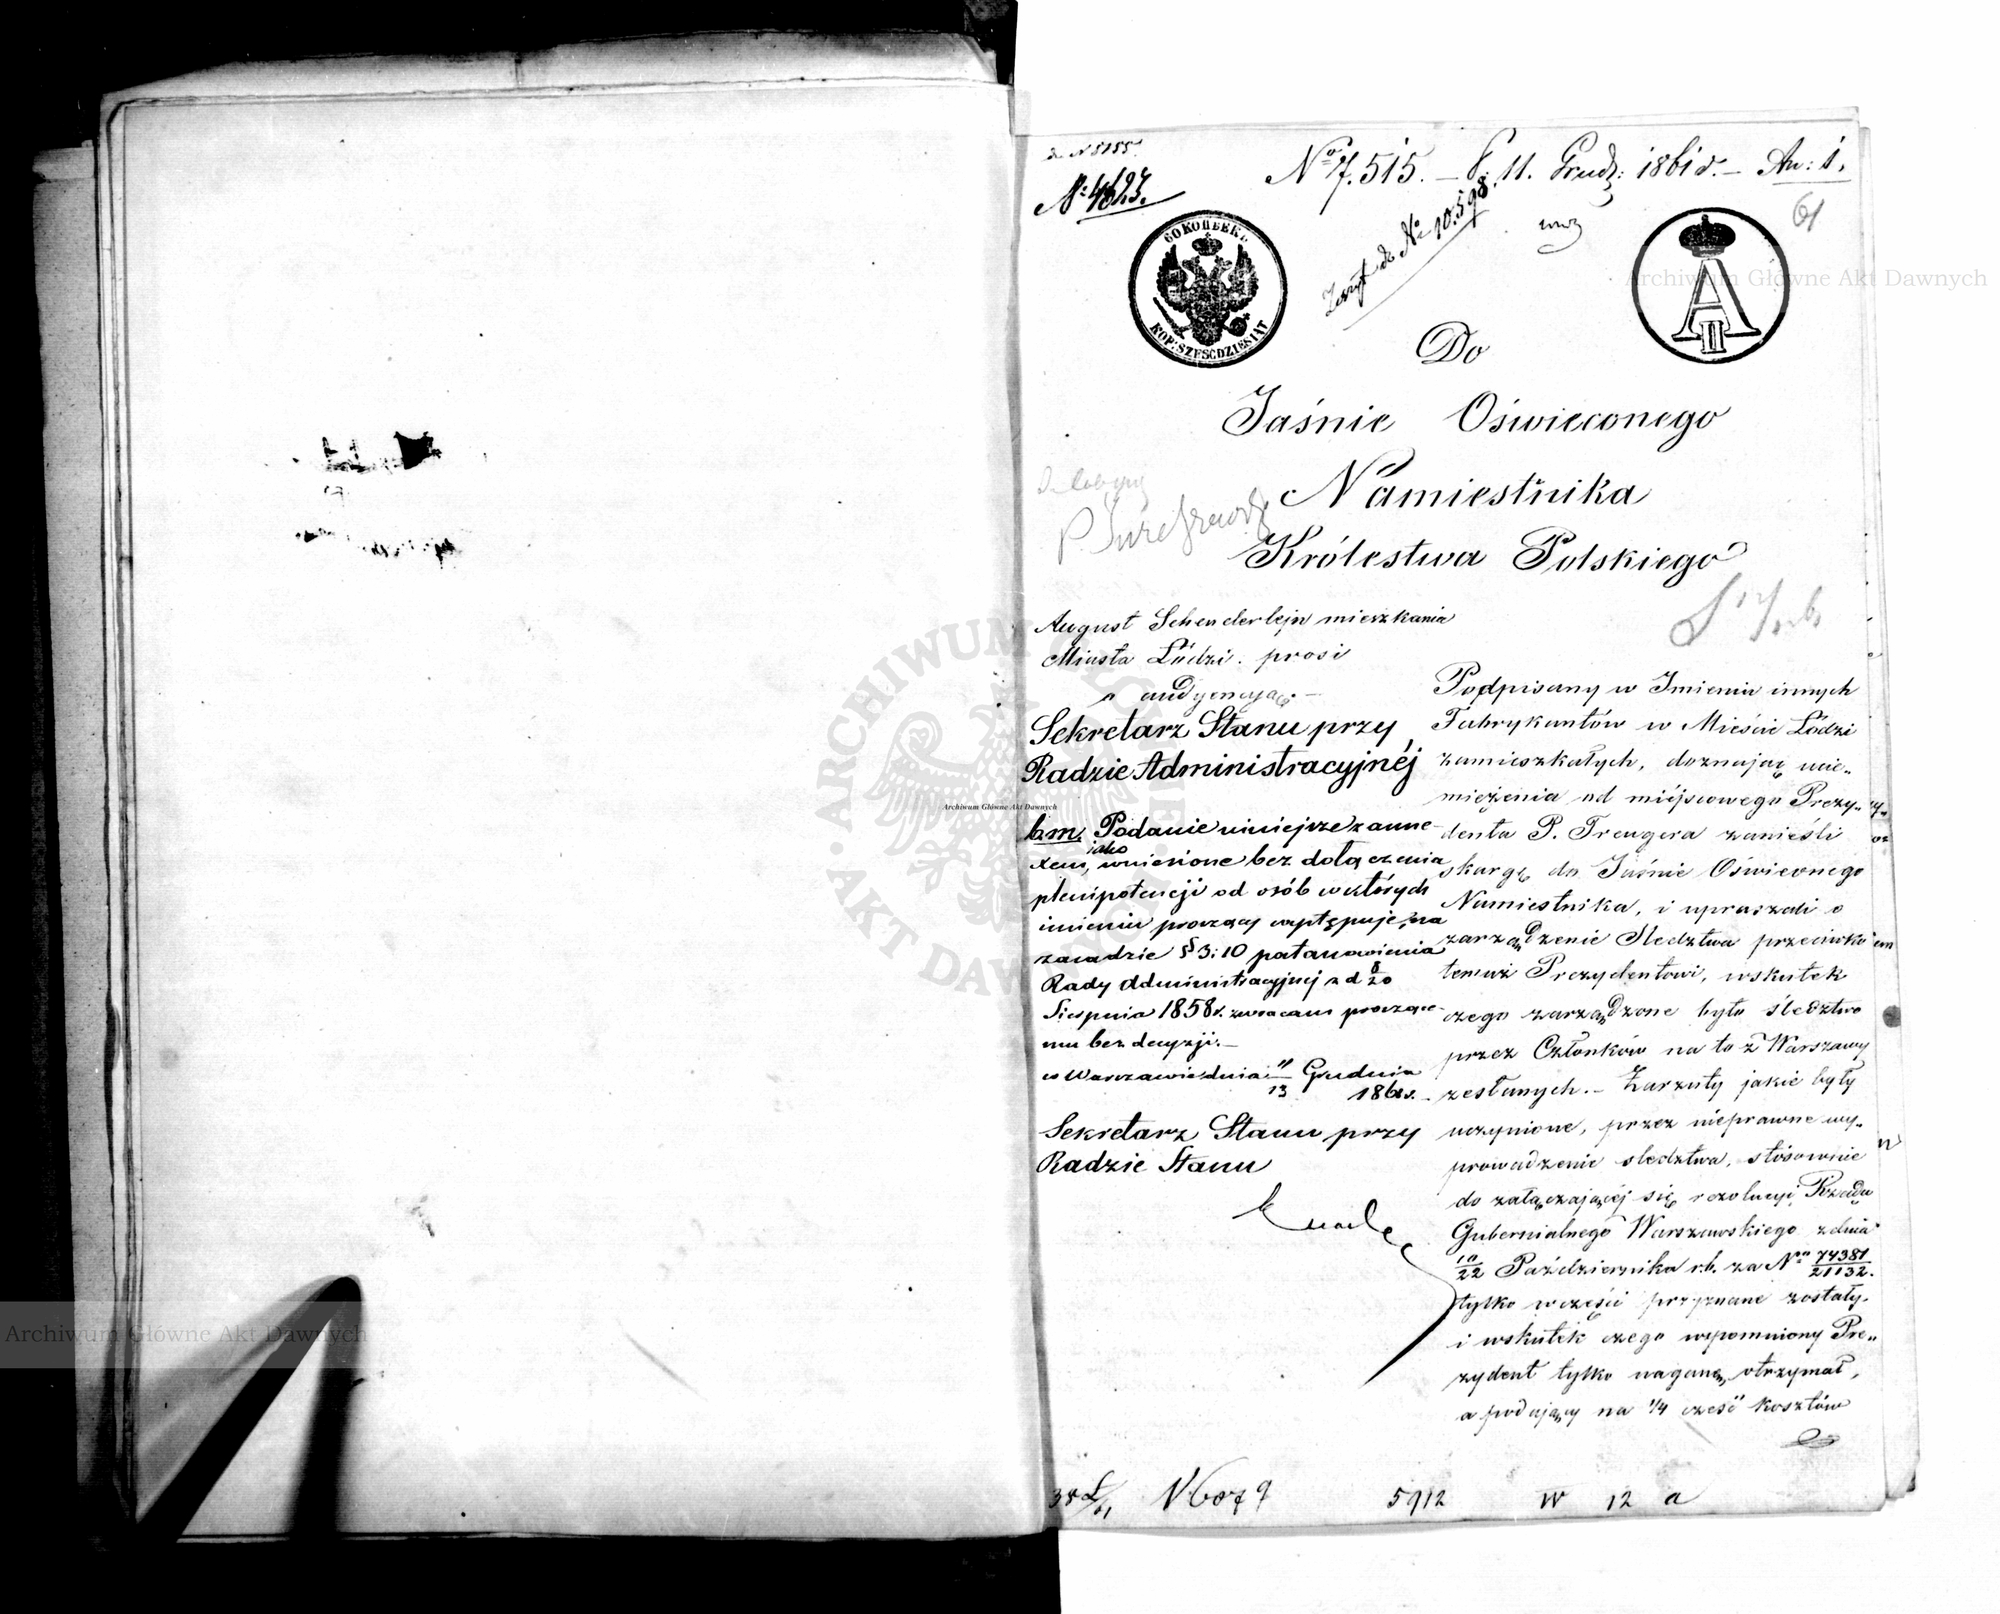 do N 8155.
N: 4623.
No 7.515. — P. 11. Grudz: 1861 r. — An: 1.
Zeszyt do No 10.598.
61
60 КОПѢЕКЪ
KOP: SZEŚĆDZIESIĄT
A II
Do
Jaśnie Oświeconego
Namiestnika
Królestwa Polskiego
August Schenderlejn mieszkaniec
Miasta Łodzi. prosi
o audyencyją. —
Sekretarz Stanu przy
Radzie Administracyjnéj
b.m. Podanie niniejsze zanne-
xem, jako wniesione bez dołączenia
plenipotencji od osób w których
imieniu proszący występuje, na
zasadzie § 3: 10 postanowienia
Rady Administracyjnej z d 8/20
Sierpnia 1858 r. zwracam proszące-
mu bez decyzji. —
w Warszawie dnia 1/13 Grudnia
1861 r. —
Sekretarz Stanu przy
Radzie Stanu
Podpisany w Imieniu innych
Fabrykantów w Mieście Łódzi
zamieszkałych, doznając ucie-
miężenia od miéjscowego Prezy-
denta P. Treugera zanieśli
skargę do Jaśnie Oświeconego
Namiestnika, i upraszali o
zarządzenie Sledztwa przeciwko
temuż Prezydentowi, wskutek
czego zarządzone było śledztwo
przez Członków na to z Warszawy
zesłanych. — Zarzuty jakie były
uczynione, przez nieprawne wy-
prowadzenie sledztwa, stósownie
do załączającéj się rezolucyi Rządu
Gubernialnego Warszawskiego z dnia
10/22 Października r.b. za No 74381/21132.
tylko w części przyznane zostały.
i wskutek czego wspomniony Pre-
zydent tylko naganę otrzymał,
a podający na 1/4 cześć kosztów
N 6079
5912
W 12 a
Archiwum Główne Akt Dawnych
Archiwum Główne Akt Dawnych
Archiwum Główne Akt Dawnych
ARCHIWUM GŁÓWNE
AKT DAWNYCH